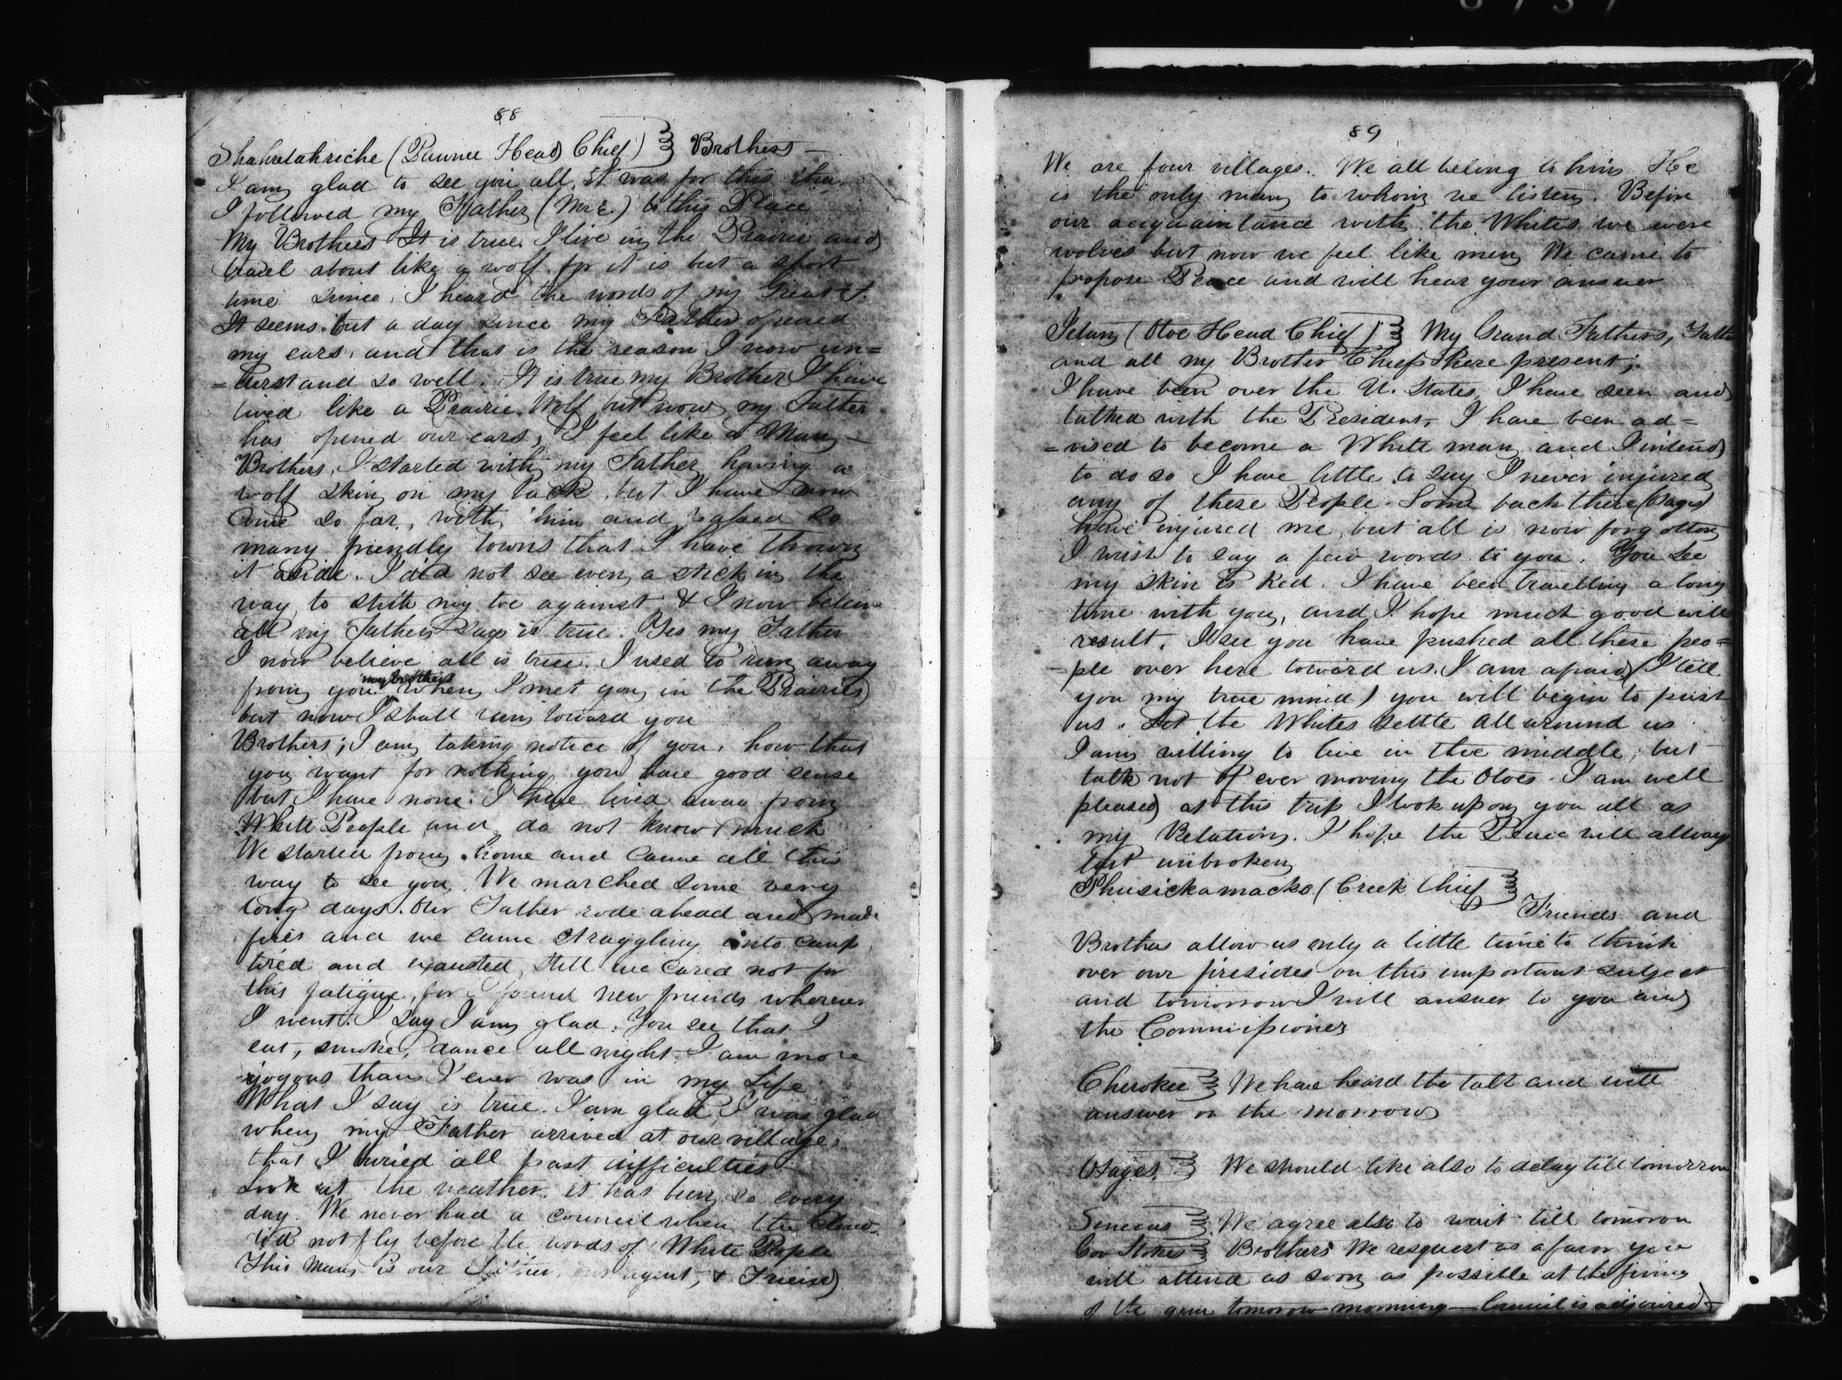 88
Shahrelahriche (Pawnee Head Chief) } Brothers —
I am glad to see you all, it was for this that
I followed my Father (Mr E.) to this Place
My Brothers It is true I live in the Prairie and
travel about like a wolf for it is but a short
time since, I heard the words of my Great F.
It seems but a day since my Father opened
my ears, and that is the reason I now un=
=derstand so well. It is true my Brother I have
lived like a Prairie Wolf but now my Father
has opened our ears, I feel like a Man —
Brothers, I started with my Father having a
wolf skin on my back, but I have now
come so far, with him and passed so
many friendly towns that I have thrown
it aside. I did not see even a stick in the
way to strike my toe against & I now believe
all my Father says is true. Yes my Father
I now believe all is true. I used to run away
from you my brothers when I met you in the Prairies
but now I shall run toward you
Brothers; I am taking notice of you, how that
you want for nothing you have good sense
but I have none. I have lived away from
White People and do not know much
We started from home and came all this
way to see you. We marched some very
long days. Our Father rode ahead and made
fires and we came straggling into camp
tired and exausted, still we cared not for
this fatigue, for I found new friends wherever
I went. I say I am glad. You see that I
eat, smoke, dance all night. I am more
joyous than I ever was in my Life
What I say is true. I am glad, I was glad
when my Father arrived at our village,
that I buried all past difficulties
Look at the weather. it has been so every
day. We never had a council when the Clouds
did not fly before the words of White People
This man is our Father, our agent, & Friend
89
We are four villages. We all belong to him He
is the only man to whom we listen. Before
our acquaintance with the Whites we were
wolves but now we feel like men We came to
propose Peace and will hear your answer
Ietan (Otoe Head Chief) } My Grand Fathers, Father
and all my Brother Chiefs Here present;
I have been over the U. States, I have seen and
talked with the President, I have been ad=
=vised to become a White man and I intend
to do so I have little to say I never injured
any of these People. Some back there (Osages)
have injured me, but all is now forgotten
I wish to say a few words to you. You see
my skin is Red. I have been travelling a long
time with you, and I hope much good will
result. I see you have pushed all these peo=
=ple over here toward us. I am afraid (I tell
you my true mind) you will begin to push
us. Let the Whites settle all around us
I am willing to live in the middle, but
talk not of ever moving the Otoes. I am well
pleased at this trip I look upon you all as
my Relations. I hope the Peace will allways
last unbroken
Thusickamacko (Creek Chief }
Friends and
Brothers allow us only a little time to think
over our firesides on this important subject
and tomorrow I will answer to you and
the Commissioners
Cherokee } We have heard the talk and will
answer on the morrow
Osages. } We should like also to delay till tomorrow
Senecas } We agree also to wait till tomorrow
Gov Stokes } Brothers We resquest as a favor you
will attend as soon as possible at the firing
of the gun tomorrow morning — Council is adjourned